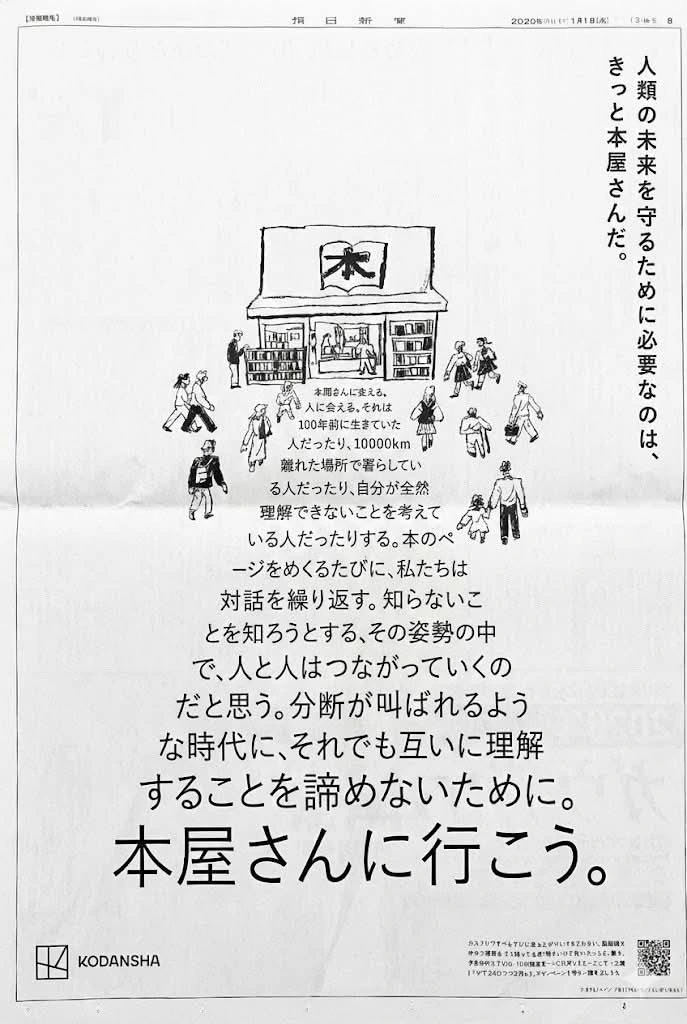 2020年 1月1日
8
人類の未来を守るために必要なのは、
きっと本屋さんだ。
本
人に会える。それは
100年前に生きていた
人だったり、10000km
離れた場所で暮らしてい
る人だったり、自分が全然
理解できないことを考えて
いる人だったりする。本のペ
ージをめくるたびに、私たちは
対話を繰り返す。知らないこ
とを知ろうとする、その姿勢の中
で、人と人はつながっていくの
だと思う。分断が叫ばれるよう
な時代に、それでも互いに理解
することを諦めないために。
本屋さんに行こう。
KODANSHA